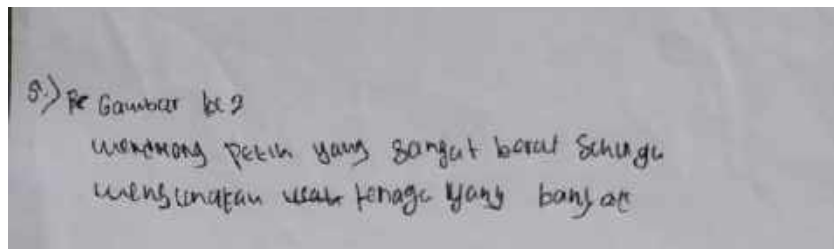 5.) Gambar ke 2
mendorong petih yang sangat berat sehinga
mengunakan tenaga yang banyak